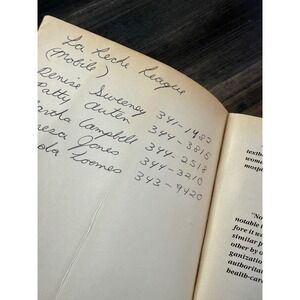 La Leche League
(Mobile)
Denise Sweeney 341-1482
Patty Auten 344-3815
Campbell 344-2518
Jones 344-3210
Loomes 343-9420
textb
wome
mosph
"No
notable i
fore it w
similar p
other by o
ganization
authoritat
health-car